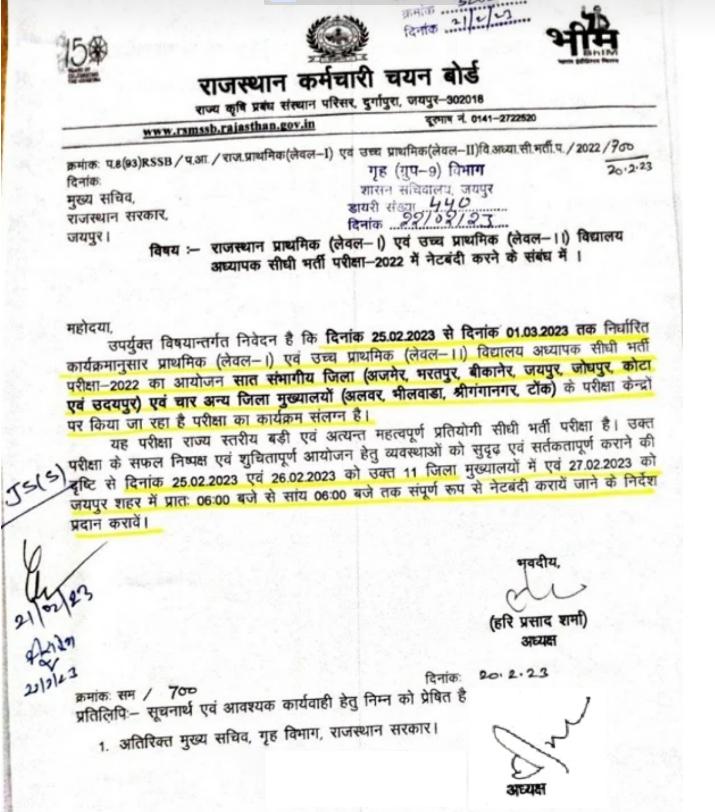 क्रमांक
दिनांक 21/2/23
150
भीम
BHIM
राजस्थान कर्मचारी चयन बोर्ड
राज्य कृषि प्रबंध संस्थान परिसर, दुर्गापुरा, जयपुर–302018
www.rsmssb.rajasthan.gov.in दूरभाष नं. 0141-2722520
क्रमांक: प.8(93)RSSB/प.आ./राज.प्राथमिक(लेवल–I) एवं उच्च प्राथमिक(लेवल–II)वि.अध्या.सी.भर्ती.प./2022/700
दिनांक: 20.2.23
गृह (ग्रुप-9) विभाग
शासन सचिवालय, जयपुर
डायरी संख्या 440
दिनांक 22/02/23
मुख्य सचिव,
राजस्थान सरकार,
जयपुर।
विषय :– राजस्थान प्राथमिक (लेवल–I) एवं उच्च प्राथमिक (लेवल–II) विद्यालय
अध्यापक सीधी भर्ती परीक्षा–2022 में नेटबंदी करने के संबंध में ।
महोदया,
उपर्युक्त विषयान्तर्गत निवेदन है कि दिनांक 25.02.2023 से दिनांक 01.03.2023 तक निर्धारित
कार्यक्रमानुसार प्राथमिक (लेवल–I) एवं उच्च प्राथमिक (लेवल–II) विद्यालय अध्यापक सीधी भर्ती
परीक्षा–2022 का आयोजन सात संभागीय जिला (अजमेर, भरतपुर, बीकानेर, जयपुर, जोधपुर, कोटा
एवं उदयपुर) एवं चार अन्य जिला मुख्यालयों (अलवर, भीलवाडा, श्रीगंगानगर, टोंक) के परीक्षा केन्द्रों
पर किया जा रहा है परीक्षा का कार्यक्रम संलग्न है।
यह परीक्षा राज्य स्तरीय बड़ी एवं अत्यन्त महत्वपूर्ण प्रतियोगी सीधी भर्ती परीक्षा है। उक्त
परीक्षा के सफल निष्पक्ष एवं शुचितापूर्ण आयोजन हेतु व्यवस्थाओं को सुदृढ़ एवं सर्तकतापूर्ण कराने की
दृष्टि से दिनांक 25.02.2023 एवं 26.02.2023 को उक्त 11 जिला मुख्यालयों में एवं 27.02.2023 को
जयपुर शहर में प्रातः 06:00 बजे से सांय 06:00 बजे तक संपूर्ण रूप से नेटबंदी करायें जाने के निर्देश
प्रदान करावें।
JS(S)
21/02/23
भवदीय,
(हरि प्रसाद शर्मा)
अध्यक्ष
दिनांक: 20.2.23
क्रमांक: सम / 700
प्रतिलिपिः– सूचनार्थ एवं आवश्यक कार्यवाही हेतु निम्न को प्रेषित है
1. अतिरिक्त मुख्य सचिव, गृह विभाग, राजस्थान सरकार।
अध्यक्ष